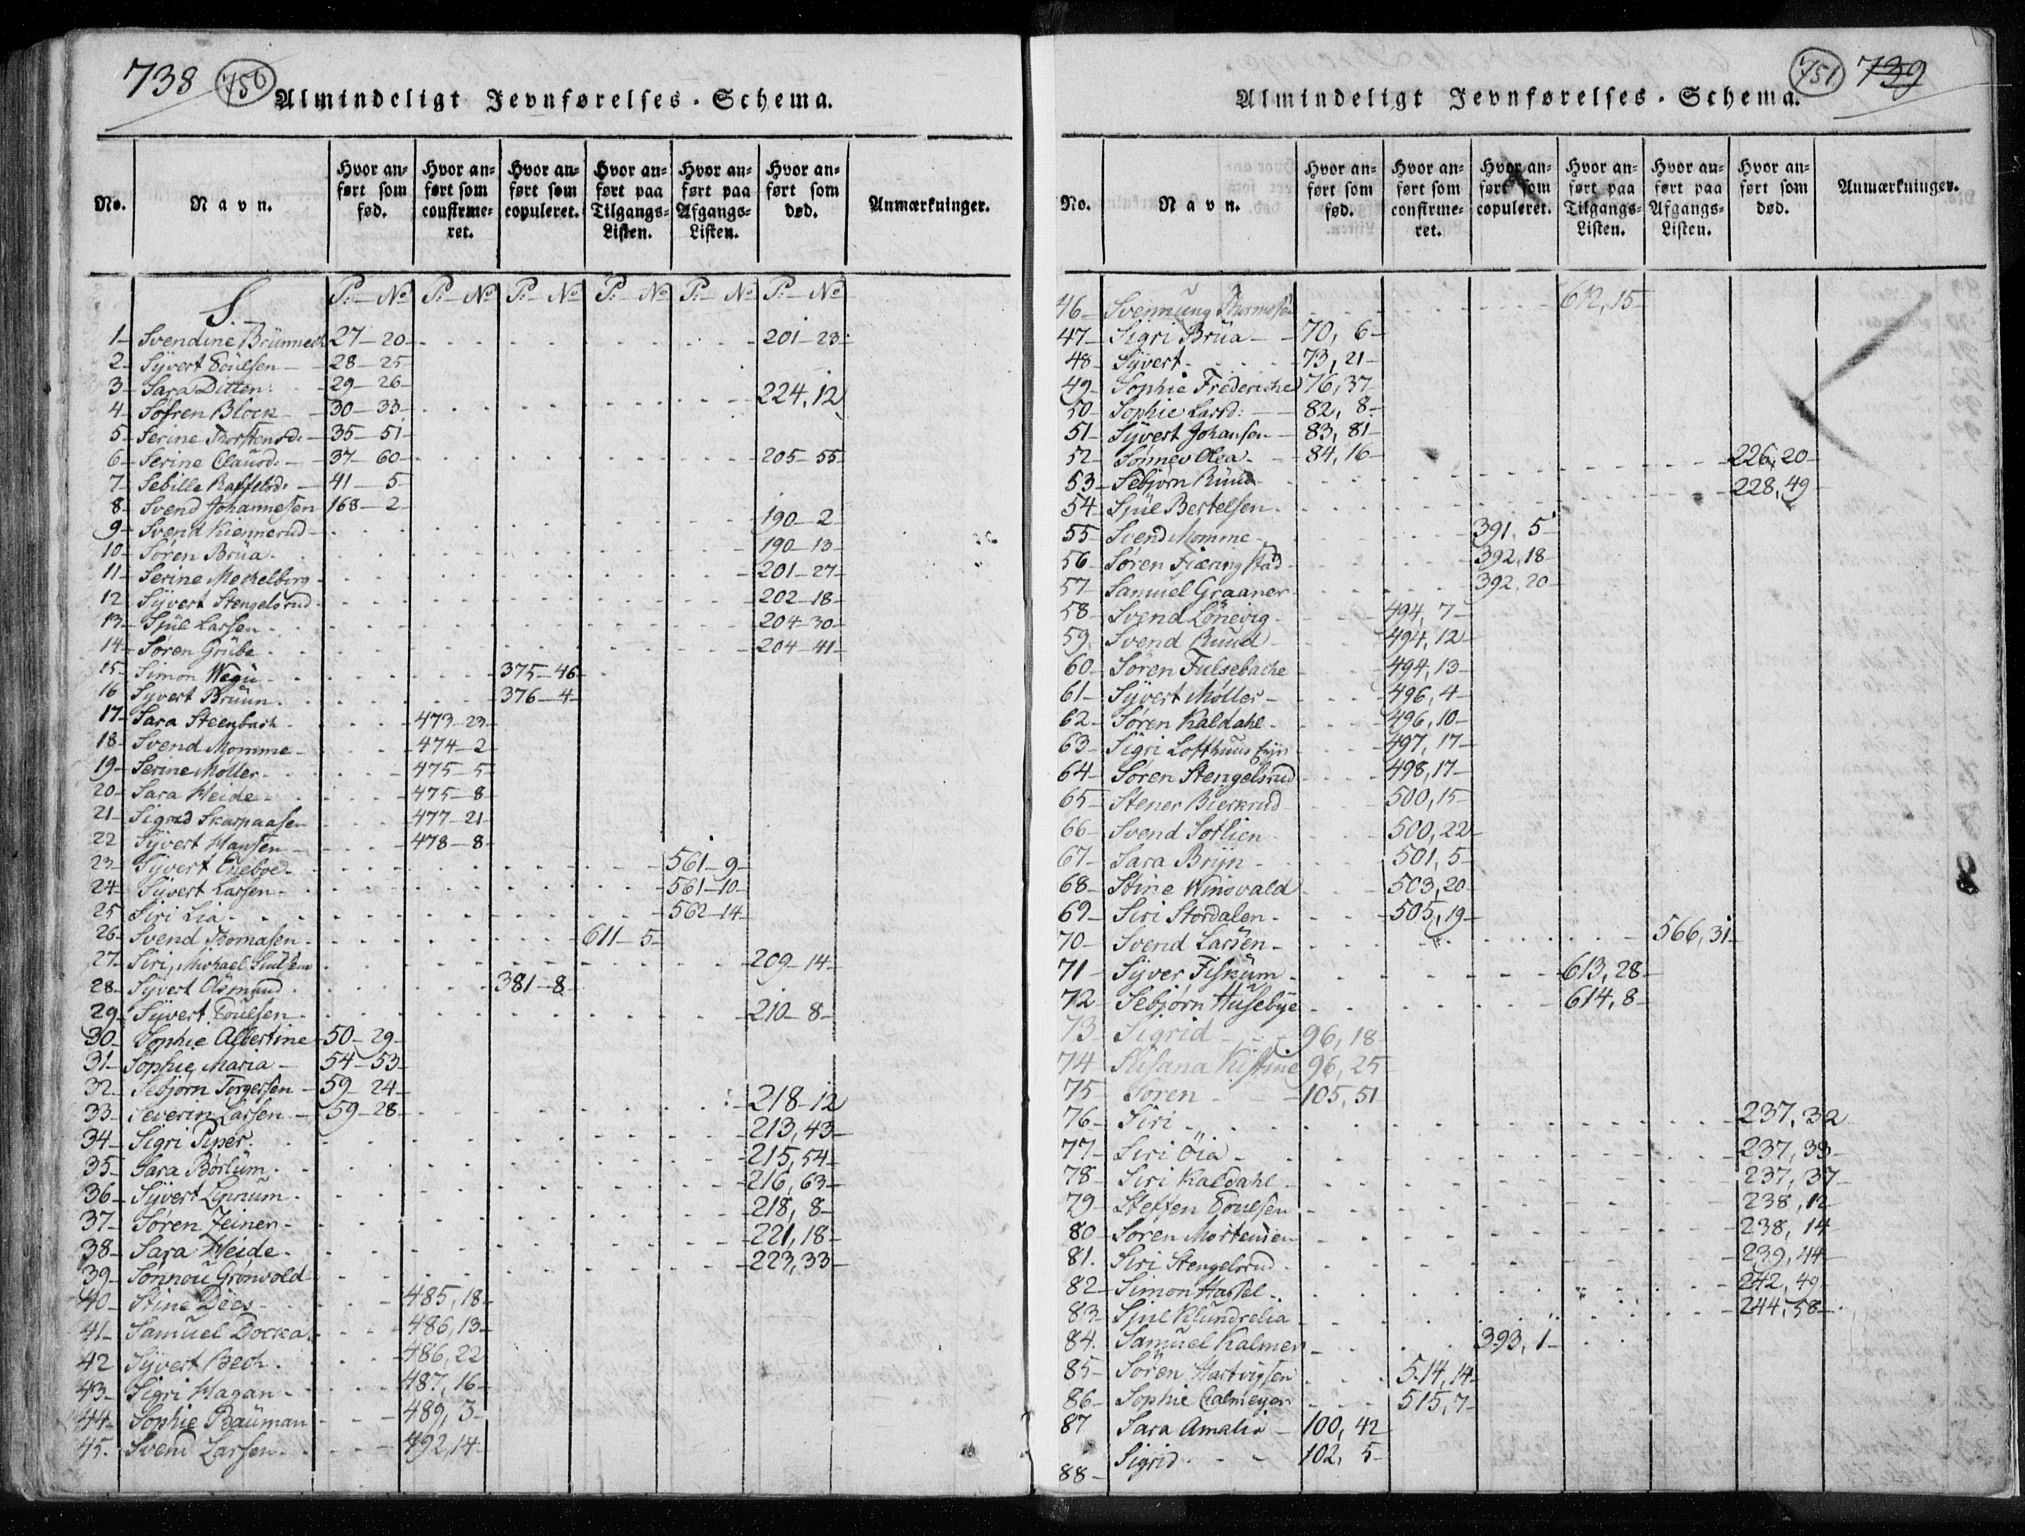 738 750
Almindeligt Jevnførelses-Schema.
No. Navn. Hvor anført som fød. Hvor anført som confirmeret. Hvor anført som copuleret. Hvor anført paa Tilgangs-Listen. Hvor anført paa Afgangs-Listen. Hvor anført som død. Anmærkninger.
S. P: - No P: - No P: - No P: - No P: - No P: - No
1 Svendine Brünnech 27-20 201-23
2 Syvert Poulsen 28-25
3 Sara Ditlen 29-26
4 Søfren Block 30-33 224,12
5 Serine Thorstensd: 35-51
6 Serine Clausd: 37-60 205-55
7 Sebille Raffelsd: 41-5
8 Svend Johannesen 168-2
9 Svend Kiennerud 190-2
10 Søren Brua 190-13
11 Serine Meckelborg 201-27
12 Syvert Stengelsrud 202-18
13 Sjul Larsen 204-30
14 Søren Grube 204-41
15 Simon Wegu 375-46
16 Syvert Bruun 376-4
17 Sara Steenbach 473-23
18 Svend Momme 474-2
19 Serine Møller 475-5
20 Sara Heide 475-8
21 Sigrid Skarpaasen 477-21
22 Syvert Hansen 478-8
23 Syvert 561-9
24 Syvert Larsen 561-10
25 Siri Lia 562-14
26 Svend Thomasen 611-5
27 Siri, Michael 209-14
28 Syvert Asmund 381-8
29 Syvert Poulsen 210-8
30 Sophie Albertine 50-29
31 Sophie Maria 54-53
32 Sebjørn Torgersen 59-24
33 Severin Larsen 59-28 218-12
34 Sigri Piper 213,43
35 Sara Børlum 215,54
36 Syvert Lipnum 216,63
37 Søren Zeiner 218,8
38 Sara Heide 221,18
39 Sønnou Grønvold 223,33
40 Stine Dees 485,18
41 Samuel Docka 486,13
42 Syvert Bech 486,22
43 Sigri Hagan 487,16
44 Sophie Bauman 489,3
45. Svend Larsen 492,14
751 739
Almindeligt Jevnførelses-Schema.
No. Navn. Hvor anført som fød. Hvor anført som confirmeret. Hvor anført som copuleret. Hvor anført paa Tilgangs-Listen. Hvor anført paa Afgangs-Listen. Hvor anført som død. Anmærkninger.
46 Svennung 612,15
47 Sigri Brua 70,6
48 Syvert 73,21
49 Sophie Frederiche 76,37
50 Sophie Larsd: 82,8
51 Syvert Johansen 83,81
52 Sønnev Olea 84,16 226,20
53 Sebjørn Ruud 228,49
54 Sjul Bertelsen
55 Svend Momme 391,5
56 Søren Fiæringstad 392,18
57 Samuel Graaner 392,20
58 Svend Lønevig 494,7
59 Svend Ruud 494,12
60 Søren Fulsebache 494,13
61 Syvert Møller 496,4
62 Søren Kaldahl 496,10
63 Sigri Lofthuus 497,17
64 Søren Stengelsrud 498,17
65 Stener Bierkrud 500,15
66 Svend Sotlien 500,22
67 Sara Bryn 501,5
68 Stine Winsvald 503,20
69 Siri Stordalen 505,19
70 Svend Larsen 566,31
71 Syver Fiskum 613,28
72 Sebjørn Husebye 614,8
73 Sigrid 96,18
74 Susana Kistine 96,25
75 Soren 105,51
76 Siri 237,32
77 Siri Øia 237,33
78 Siri Kaldahl 237,37
79 Steffen Poulsen 238,12
80 Søren Mortensen 238,14
81. Siri Stengelsrud 239,44
82 Simon Hassel 242,49
83 Sjul Klundrelia 244,58
84. Samuel Kalmer 393,1
85 Søren Hartvigsen 514,14
86 Sophie Calmeyer 515,7
87 Sara Amalie 100,42
88 Sigrid 102,5